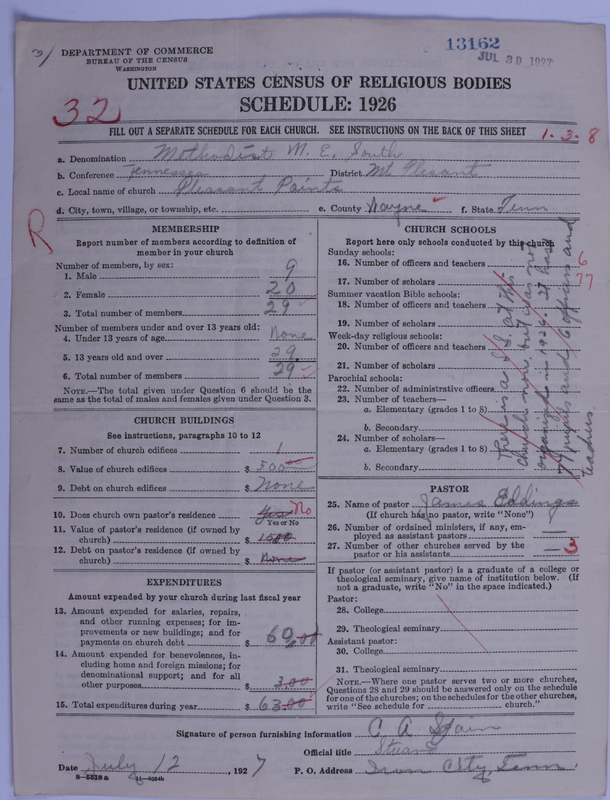 DEPARTMENT OF COMMERCE
BUREAU OF THE CENSUS
WASHINGTON
13162
JUL 30 1927
UNITED STATES CENSUS OF RELIGIOUS BODIES
SCHEDULE: 1926
32
FILL OUT A SEPARATE SCHEDULE FOR EACH CHURCH. SEE INSTRUCTIONS ON THE BACK OF THIS SHEET
1-3-8
a. Denomination Methodist M. E. South
b. Conference Tennessee District Mt Plesant
c. Local name of church Pleasant Points
d. City, town, village, or township, etc. e. County Wayne f. State Tenn
R
MEMBERSHIP
Report number of members according to definition of member in your church
Number of members, by sex:
1. Male 9
2. Female 20
3. Total number of members 29
Number of members under and over 13 years old:
4. Under 13 years of age None
5. 13 years old and over 29
6. Total number of members 29
NOTE.—The total given under Question 6 should be the same as the total of males and females given under Question 3.
CHURCH BUILDINGS
See instructions, paragraphs 10 to 12
7. Number of church edifices 1
8. Value of church edifices $ 500
9. Debt on church edifices $ None
10. Does church own pastor's residence Yes No
Yes or No
11. Value of pastor's residence (if owned by church) $ 1500
12. Debt on pastor's residence (if owned by church) $ None
EXPENDITURES
Amount expended by your church during last fiscal year
13. Amount expended for salaries, repairs, and other running expenses; for improvements or new buildings; and for payments on church debt $ 60.00
14. Amount expended for benevolences, including home and foreign missions; for denominational support; and for all other purposes $ 3.00
15. Total expenditures during year $ 63.00
CHURCH SCHOOLS
Report here only schools conducted by this church
Sunday schools:
16. Number of officers and teachers 6
17. Number of scholars 77
Summer vacation Bible schools:
18. Number of officers and teachers
19. Number of scholars
Week-day religious schools:
20. Number of officers and teachers
21. Number of scholars
Parochial schools:
22. Number of administrative officers
23. Number of teachers—
a. Elementary (grades 1 to 8)
b. Secondary
24. Number of scholars—
a. Elementary (grades 1 to 8)
b. Secondary
There is a S.S. at this
church now, but was not
organized in 1926. It has
77 pupils and 6 officers and
teachers.
PASTOR
25. Name of pastor James Eddings
(If church has no pastor, write "None")
26. Number of ordained ministers, if any, employed as assistant pastors —
27. Number of other churches served by the pastor or his assistants — 3
If pastor (or assistant pastor) is a graduate of a college or theological seminary, give name of institution below. (If not a graduate, write "No" in the space indicated.)
Pastor:
28. College
29. Theological seminary
Assistant pastor:
30. College
31. Theological seminary
NOTE.—Where one pastor serves two or more churches, Questions 28 and 29 should be answered only on the schedule for one of the churches; on the schedules for the other churches, write "See schedule for church."
Signature of person furnishing information C. A. Stain
Official title
Date July 12, 1927 P. O. Address Iron City, Tenn.
8—5518a